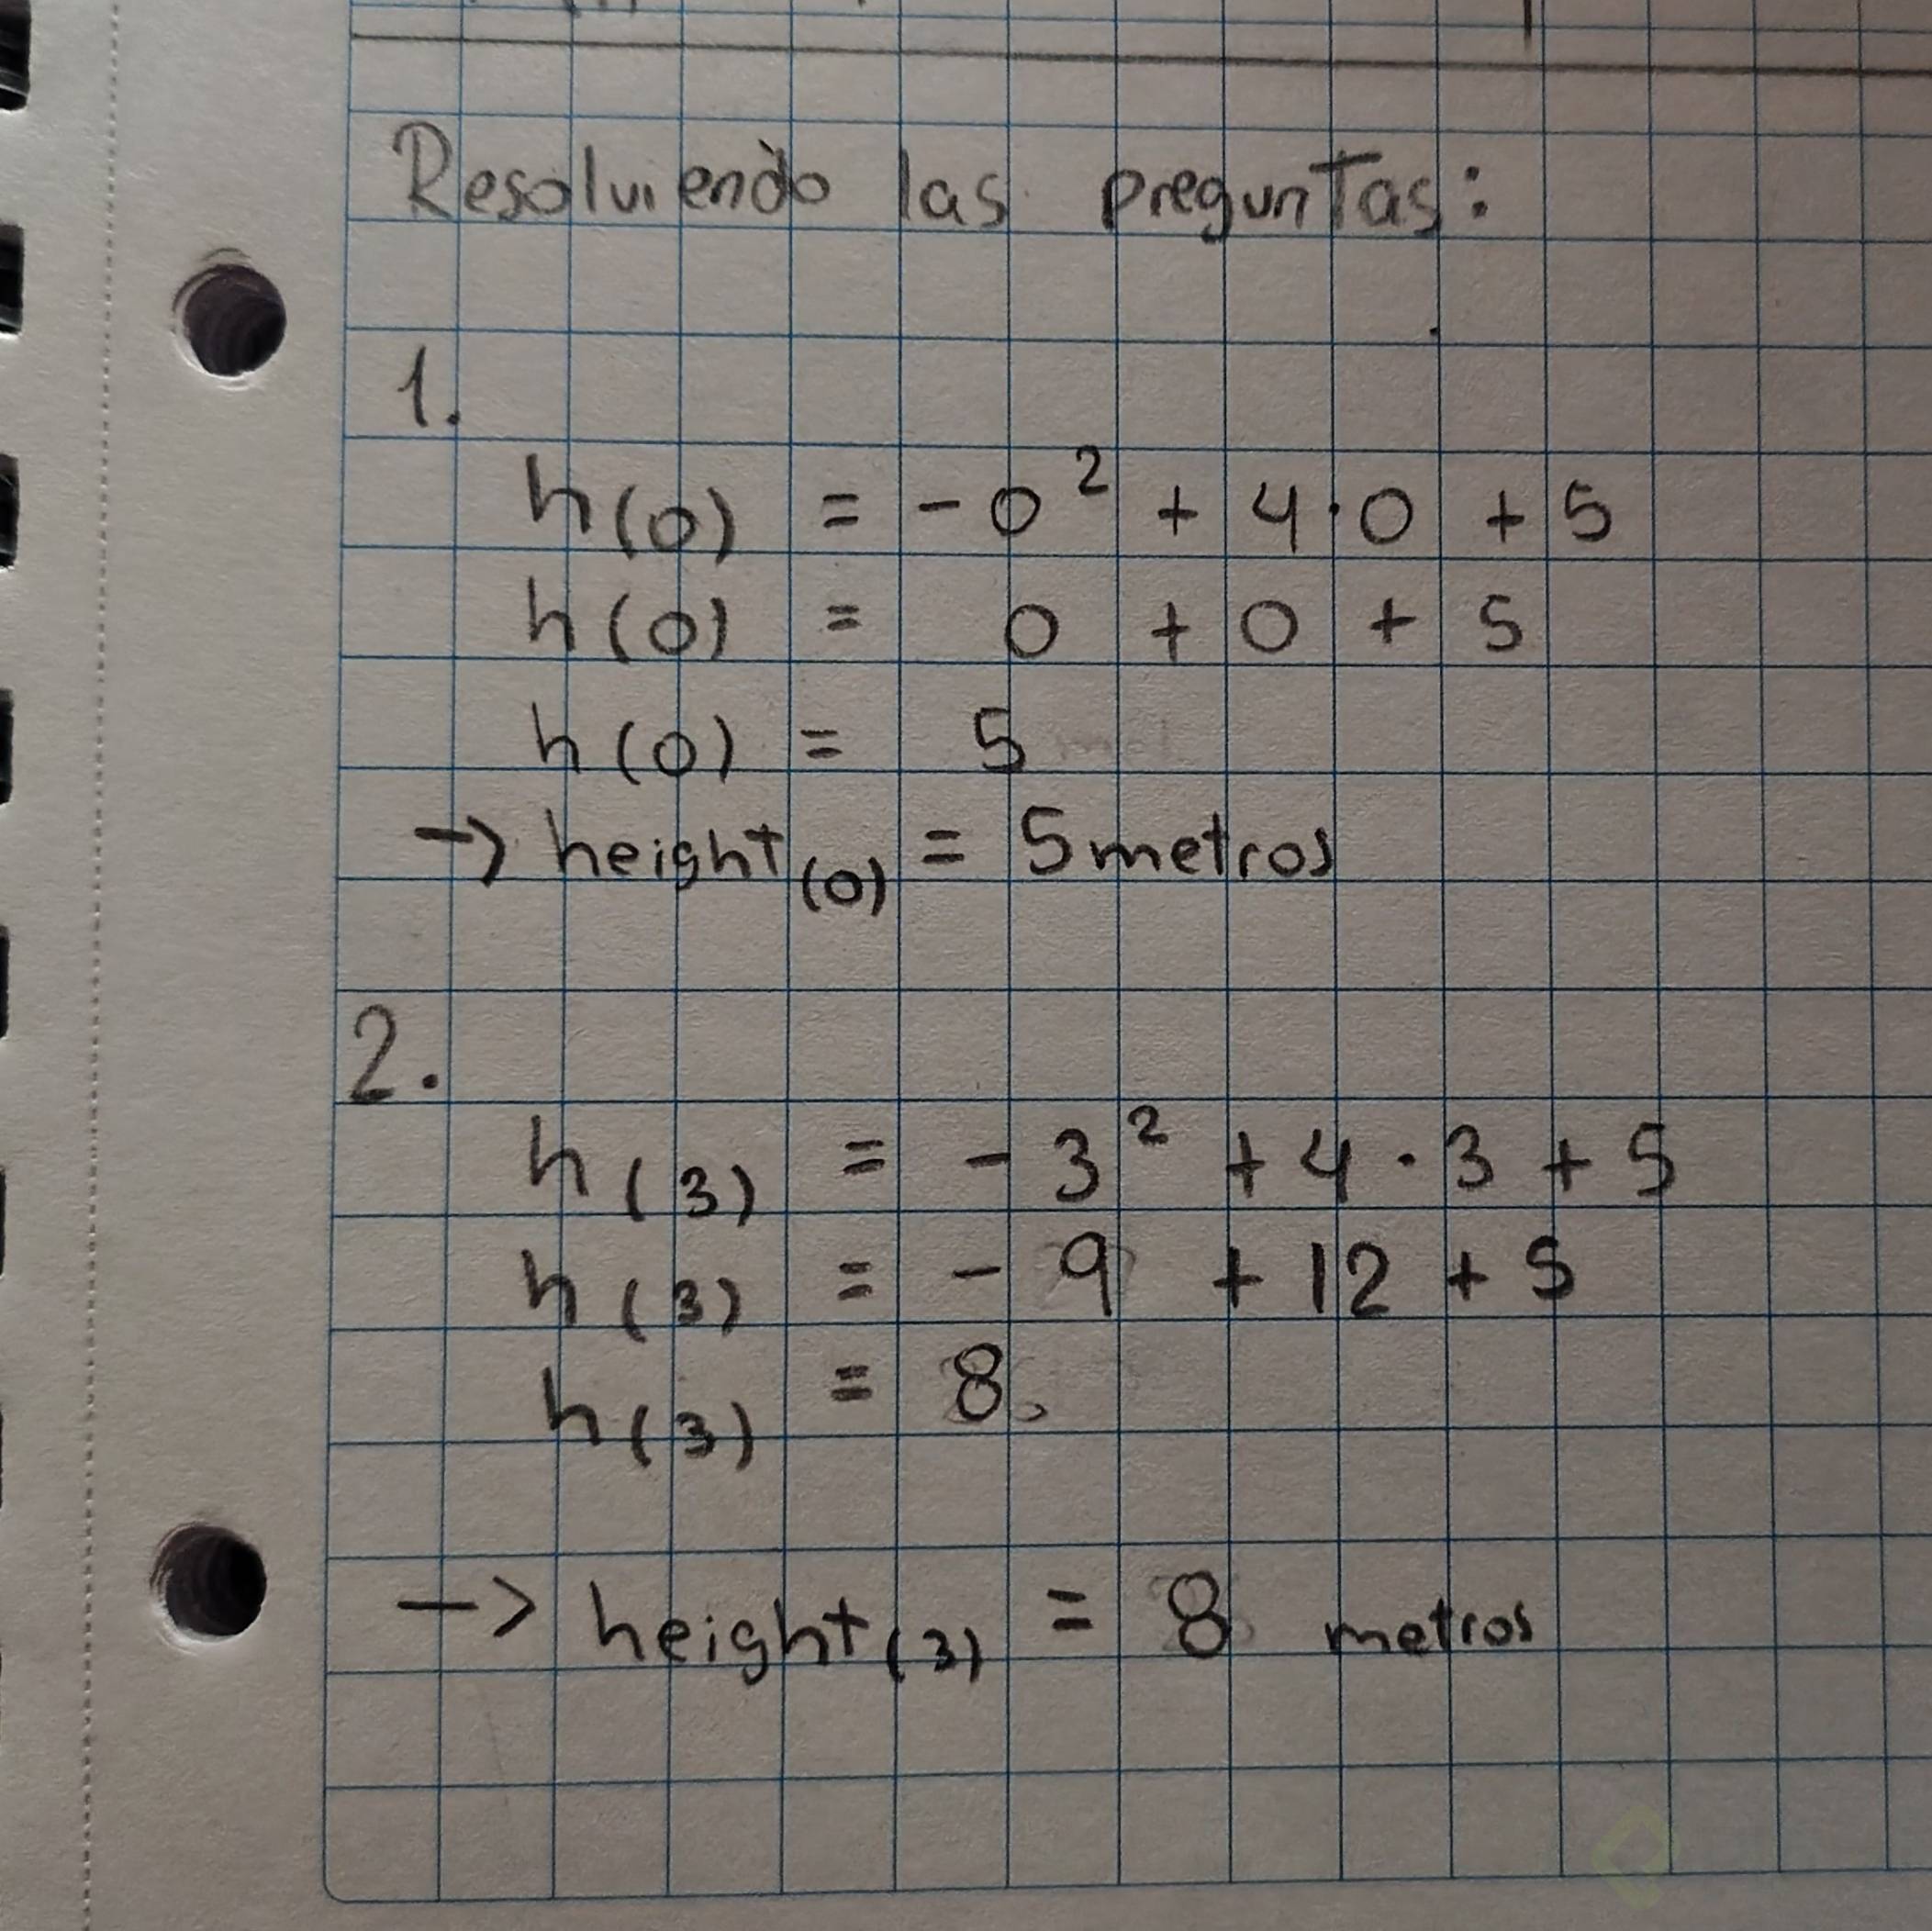 Resolviendo las preguntas:
1.
h(0) = -0² + 4·0 + 5
h(0) = 0 + 0 + 5
h(0) = 5
→ height(0) = 5metros
2.
h(3) = - 3² + 4 · 3 + 5
h(3) = - 9 + 12 + 5
h(3) = 8
→ height(3) = 8 metros